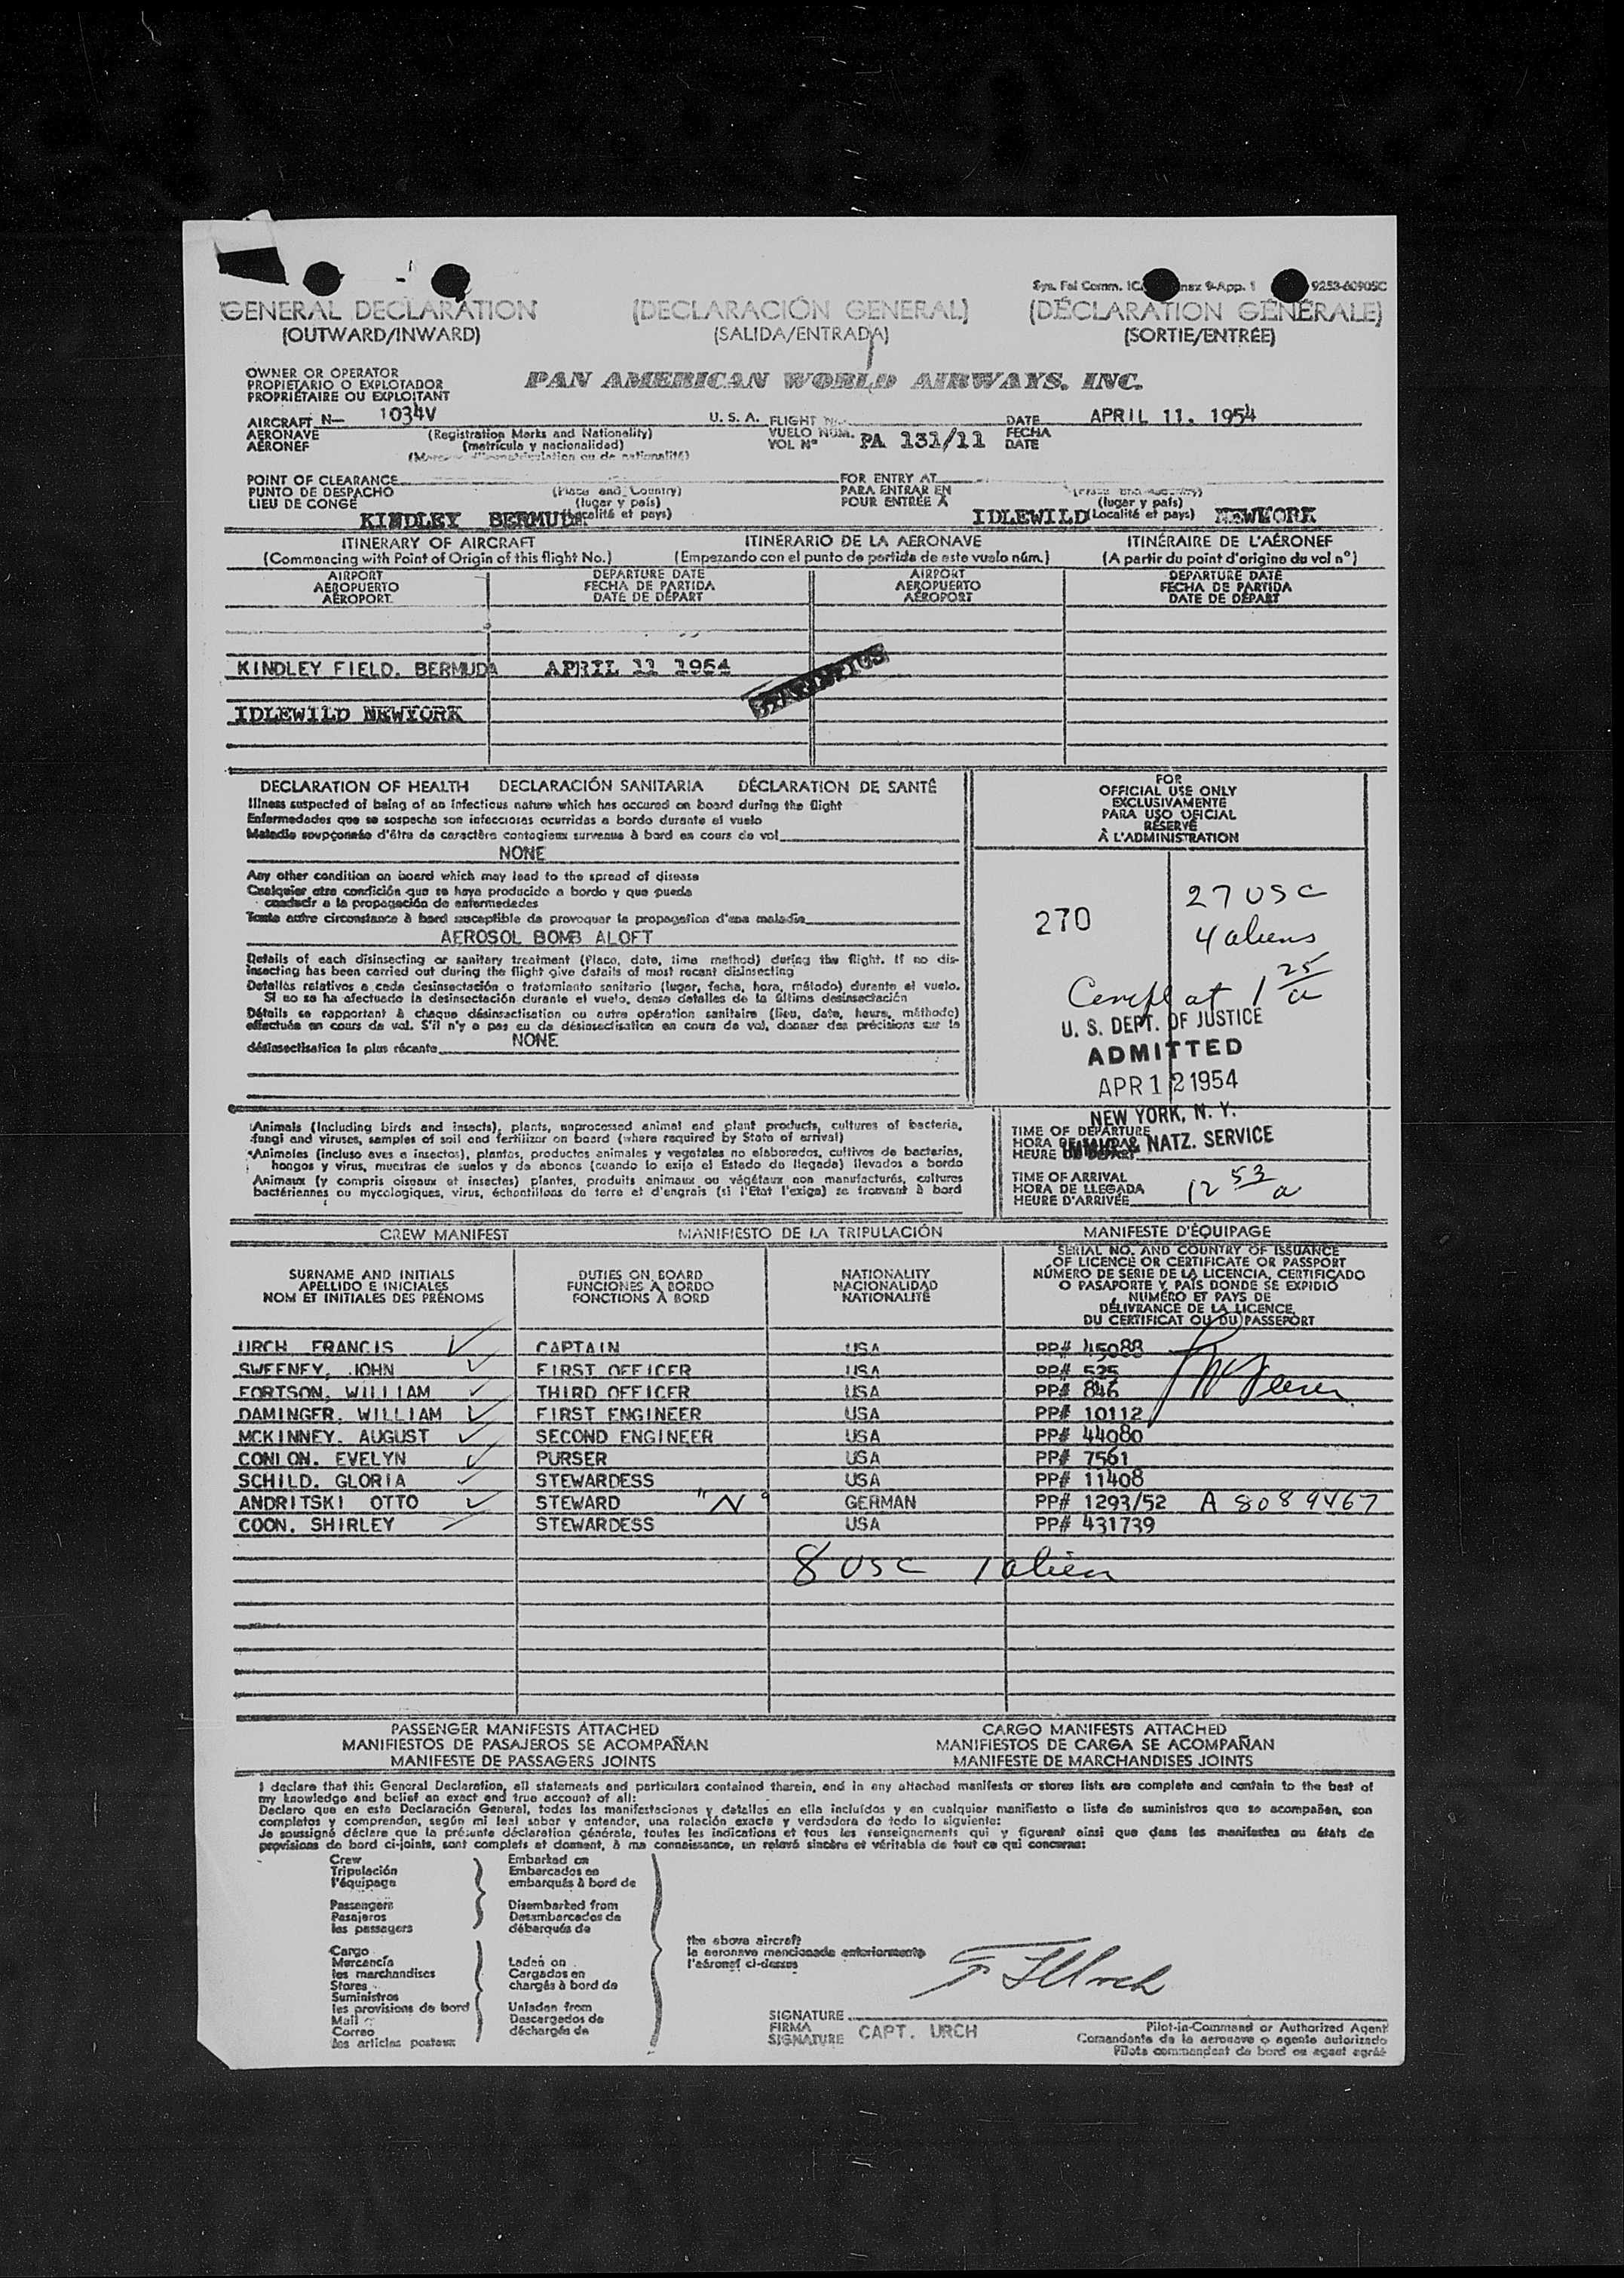 Sys. Fal Comm. IC nex 9-App. 1 9253-60905C
GENERAL DECLARATION (DECLARACIÓN GENERAL) (DÉCLARATION GÉNÉRALE)
(OUTWARD/INWARD) (SALIDA/ENTRADA) (SORTIE/ENTRÉE)
OWNER OR OPERATOR
PROPIETARIO O EXPLOTADOR
PROPRIÉTAIRE OU EXPLOITANT
PAN AMERICAN WORLD AIRWAYS, INC.
AIRCRAFT N— 1034V U. S. A.
AERONAVE (Registration Marks and Nationality)
AÉRONEF (matrícula y nacionalidad)
FLIGHT
VUELO NÚM.
VOL Nº PA 131/11
DATE APRIL 11, 1954
FECHA
DATE
POINT OF CLEARANCE
PUNTO DE DESPACHO (Place and Country)
LIEU DE CONGÉ (lugar y país)
KINDLEY BERMUDA et pays)
FOR ENTRY AT
PARA ENTRAR EN
POUR ENTRÉE À (lugar y país)
IDLEWILD (Localité et pays) NEWYORK
ITINERARY OF AIRCRAFT ITINERARIO DE LA AERONAVE ITINÉRAIRE DE L'AÉRONEF
(Commencing with Point of Origin of this flight No.) (Empezando con el punto de partida de este vuelo núm.) (A partir du point d'origine du vol nº)
AIRPORT DEPARTURE DATE AIRPORT DEPARTURE DATE
AEROPUERTO FECHA DE PARTIDA AEROPUERTO FECHA DE PARTIDA
AÉROPORT DATE DE DÉPART AÉROPORT DATE DE DÉPART
KINDLEY FIELD. BERMUDA APRIL 11 1954
STATISTICS
IDLEWILD NEWYORK
DECLARATION OF HEALTH DECLARACIÓN SANITARIA DÉCLARATION DE SANTÉ
Illness suspected of being of an infectious nature which has occured on board during the flight
Enfermedades que se sospecha son infecciosas ocurridas a bordo durante el vuelo
Maladie soupçonnée d'être de caractère contagieux survenue à bord en cours de vol
NONE
Any other condition on board which may lead to the spread of disease
Cualquier otra condición que se haya producido a bordo y que pueda
conducir a la propagación de enfermedades
Toute autre circonstance à bord susceptible de provoquer la propagation d'une maladie
AEROSOL BOMB ALOFT
Details of each disinsecting or sanitary treatment (Place, date, time method) during the flight. If no dis-
insecting has been carried out during the flight give details of most recent disinsecting
Detalles relativos a cada desinsectación o tratamiento sanitario (lugar, fecha, hora, método) durante el vuelo.
Si no se ha efectuado la desinsectación durante el vuelo, dense detalles de la última desinsectación
Détails se rapportant à chaque désinsectisation ou autre opération sanitaire (lieu, date, heure, méthode)
effectuée en cours de vol. S'il n'y a pas eu de désinsectisation en cours de vol, donner des précisions sur la
désinsectisation la plus récente NONE
FOR
OFFICIAL USE ONLY
EXCLUSIVAMENTE
PARA USO OFICIAL
RÉSERVÉ
À L'ADMINISTRATION
270
27 USC
4 aliens
Compl at 1 25 a
U. S. DEPT. OF JUSTICE
ADMITTED
APR 12 1954
NEW YORK, N. Y.
IMMIG. & NATZ. SERVICE
Animals (Including birds and insects), plants, unprocessed animal and plant products, cultures of bacteria,
fungi and viruses, samples of soil and fertilizer on board (where required by State of arrival)
Animales (incluso aves e insectos), plantas, productos animales y vegetales no elaborados, cultivos de bacterias,
hongos y virus, muestras de suelos y de abonos (cuando lo exija el Estado de llegada) llevados a bordo
Animaux (y compris oiseaux et insectes) plantes, produits animaux ou végétaux non manufacturés, cultures
bactériennes ou mycologiques, virus, échantillons de terre et d'engrais (si l'Etat l'exige) se trouvant à bord
TIME OF DEPARTURE
HORA DE SALIDA
HEURE DE DÉPART
TIME OF ARRIVAL
HORA DE LLEGADA 12 53 a
HEURE D'ARRIVÉE
CREW MANIFEST MANIFIESTO DE LA TRIPULACIÓN MANIFESTE D'ÉQUIPAGE
SURNAME AND INITIALS
APELLIDO E INICIALES
NOM ET INITIALES DES PRÉNOMS
DUTIES ON BOARD
FUNCIONES A BORDO
FONCTIONS À BORD
NATIONALITY
NACIONALIDAD
NATIONALITÉ
SERIAL NO. AND COUNTRY OF ISSUANCE
OF LICENCE OR CERTIFICATE OR PASSPORT
NÚMERO DE SERIE DE LA LICENCIA, CERTIFICADO
O PASAPORTE Y PAÍS DONDE SE EXPIDIÓ
NUMÉRO ET PAYS DE
DÉLIVRANCE DE LA LICENCE
DU CERTIFICAT OU DU PASSEPORT
URCH FRANCIS CAPTAIN USA PP# 45088
SWEENEY, JOHN FIRST OFFICER USA PP# 525
FORTSON, WILLIAM THIRD OFFICER USA PP# 846
DAMINGER, WILLIAM FIRST ENGINEER USA PP# 10112
MCKINNEY, AUGUST SECOND ENGINEER USA PP# 44080
CONLON. EVELYN PURSER USA PP# 7561
SCHILD. GLORIA STEWARDESS USA PP# 11408
ANDRITSKI OTTO STEWARD "N" GERMAN PP# 1293/52 A 8089467
COON. SHIRLEY STEWARDESS USA PP# 431739
8 USC 1 alien
PASSENGER MANIFESTS ATTACHED CARGO MANIFESTS ATTACHED
MANIFIESTOS DE PASAJEROS SE ACOMPAÑAN MANIFIESTOS DE CARGA SE ACOMPAÑAN
MANIFESTE DE PASSAGERS JOINTS MANIFESTE DE MARCHANDISES JOINTS
I declare that this General Declaration, all statements and particulars contained therein, and in any attached manifests or stores lists are complete and contain to the best of
my knowledge and belief an exact and true account of all:
Declaro que en esta Declaración General, todas las manifestaciones y detalles en ella incluídos y en cualquier manifiesto o lista de suministros que se acompañen, son
completos y comprenden, según mi leal saber y entender, una relación exacta y verdadera de todo lo siguiente:
Je soussigné déclare que la présente déclaration générale, toutes les indications et tous les renseignements qui y figurent ainsi que dans les manifestes ou états de
provisions de bord ci-joints, sont complets et donnent, à ma connaissance, un relevé sincère et véritable de tout ce qui concerne:
Crew Embarked on
Tripulación Embarcados en
l'équipage embarqués à bord de
Passengers Disembarked from
Pasajeros Desembarcados de
les passagers débarqués de
Cargo
Mercancía Laden on
les marchandises Cargados en
Stores chargés à bord de
Suministros
les provisions de bord Unladen from
Mail Descargados de
Correo déchargés de
les articles postaux
the above aircraft
la aeronave mencionada anteriormente
l'aéronef ci-dessus
F. J Urch
SIGNATURE
FIRMA CAPT. URCH
SIGNATURE
Pilot-in-Command or Authorized Agent
Comandante de la aeronave o agente autorizado
Pilote commandant de bord ou agent agréé